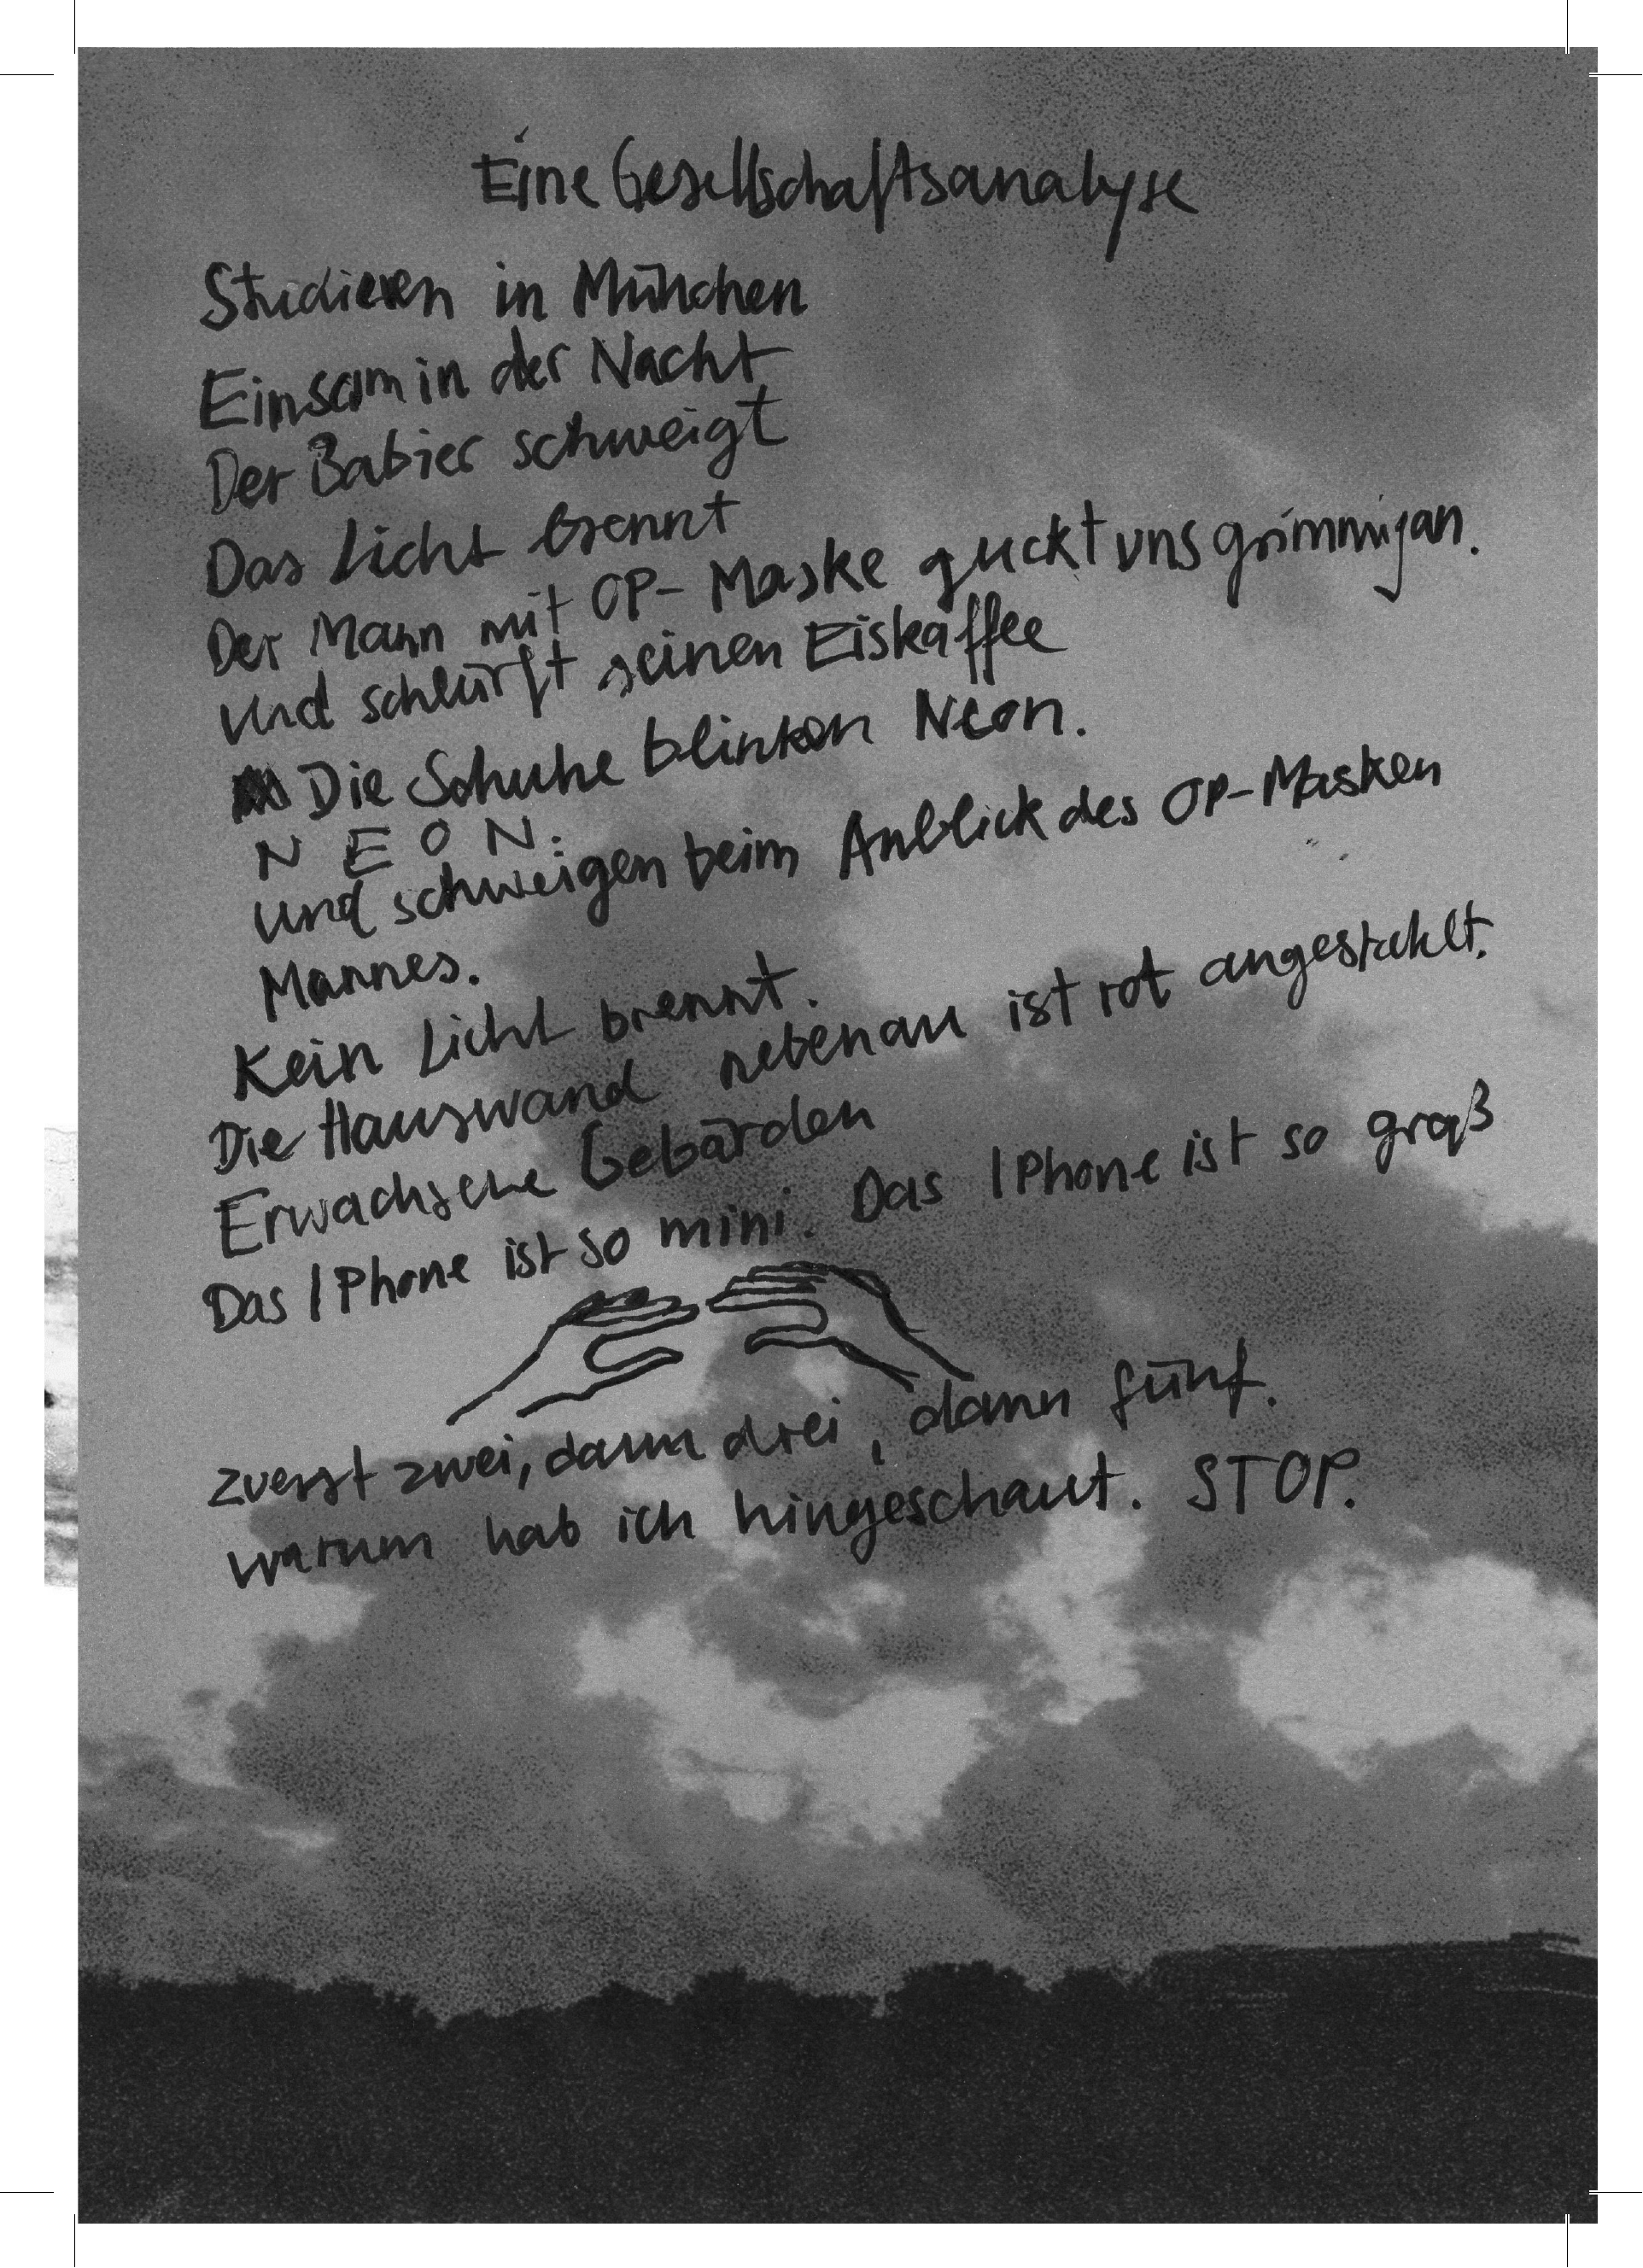 Eine Gesellschaftsanalyse
Studieren in München
Einsam in der Nacht
Der Babier schweigt
Das Licht brennt
Der Mann mit OP-Maske guckt uns grimmig an.
Und schlürft seinen Eiskaffee
Die Schuhe blinken Neon.
N E O N.
und schweigen beim Anblick des OP-Masken
Mannes.
Kein Licht brennt.
Die Hauswand nebenan ist rot angestahlt.
Erwachsene Gebärden
Das IPhone ist so mini. Das IPhone ist so groß
zuerst zwei, dann drei, dann fünf.
warum hab ich hingeschaut. STOP.